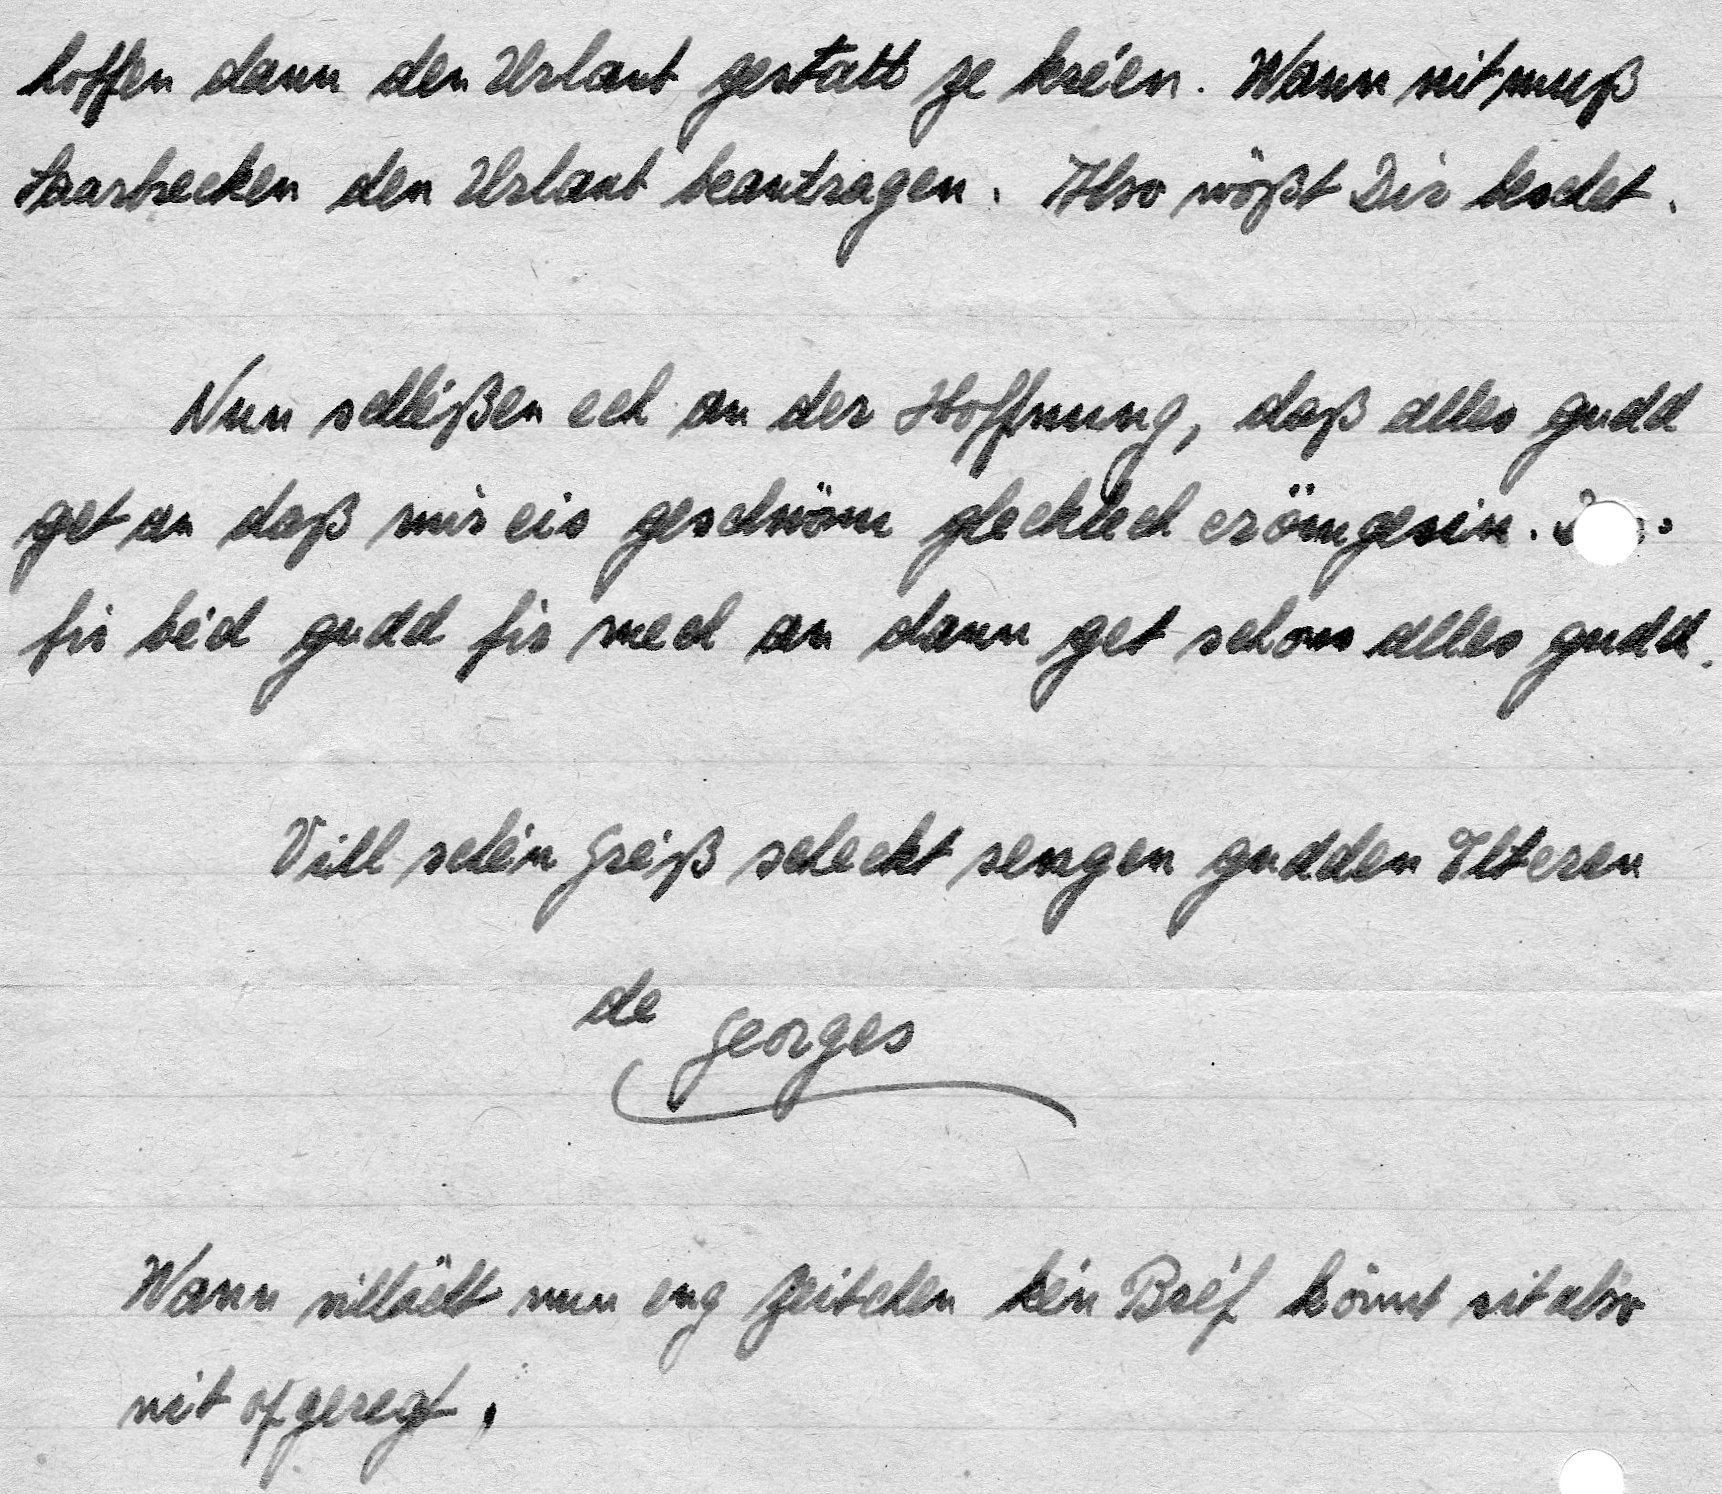 hoffen dann den Urlaub gestatt ze kréen. Wann nit muß
Saarbrecken den Urlaub beantragen. Also wößt Dir beschet.
Nun schléßen ech an der Hoffnung, daß alles gudd
get an daß mir eis geschwönn glecklech erömgesin.
fir béd gudd fir mech an dann get schons alles gudd.
Vill schéin Gréiß scheckt sengen gudden Elteren
de Georges
Wann villäit nun eng Zeitchen kén Bréf kömmt sit also
nit opgeregt.